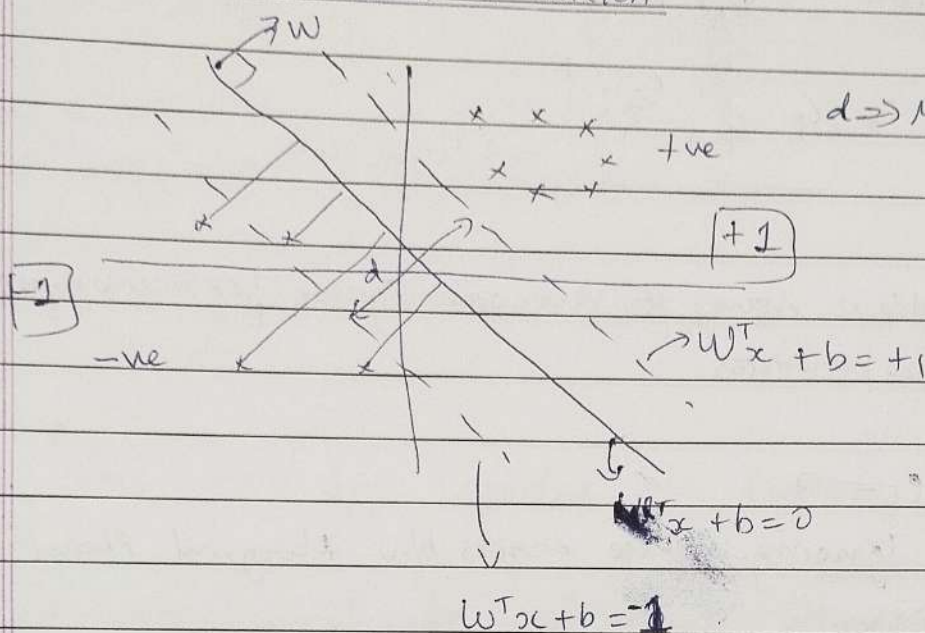 W
d => 
+ve
+1
d
-1
-ve
W^T x + b = +1
W^T x + b = 0
W^T x + b = -1